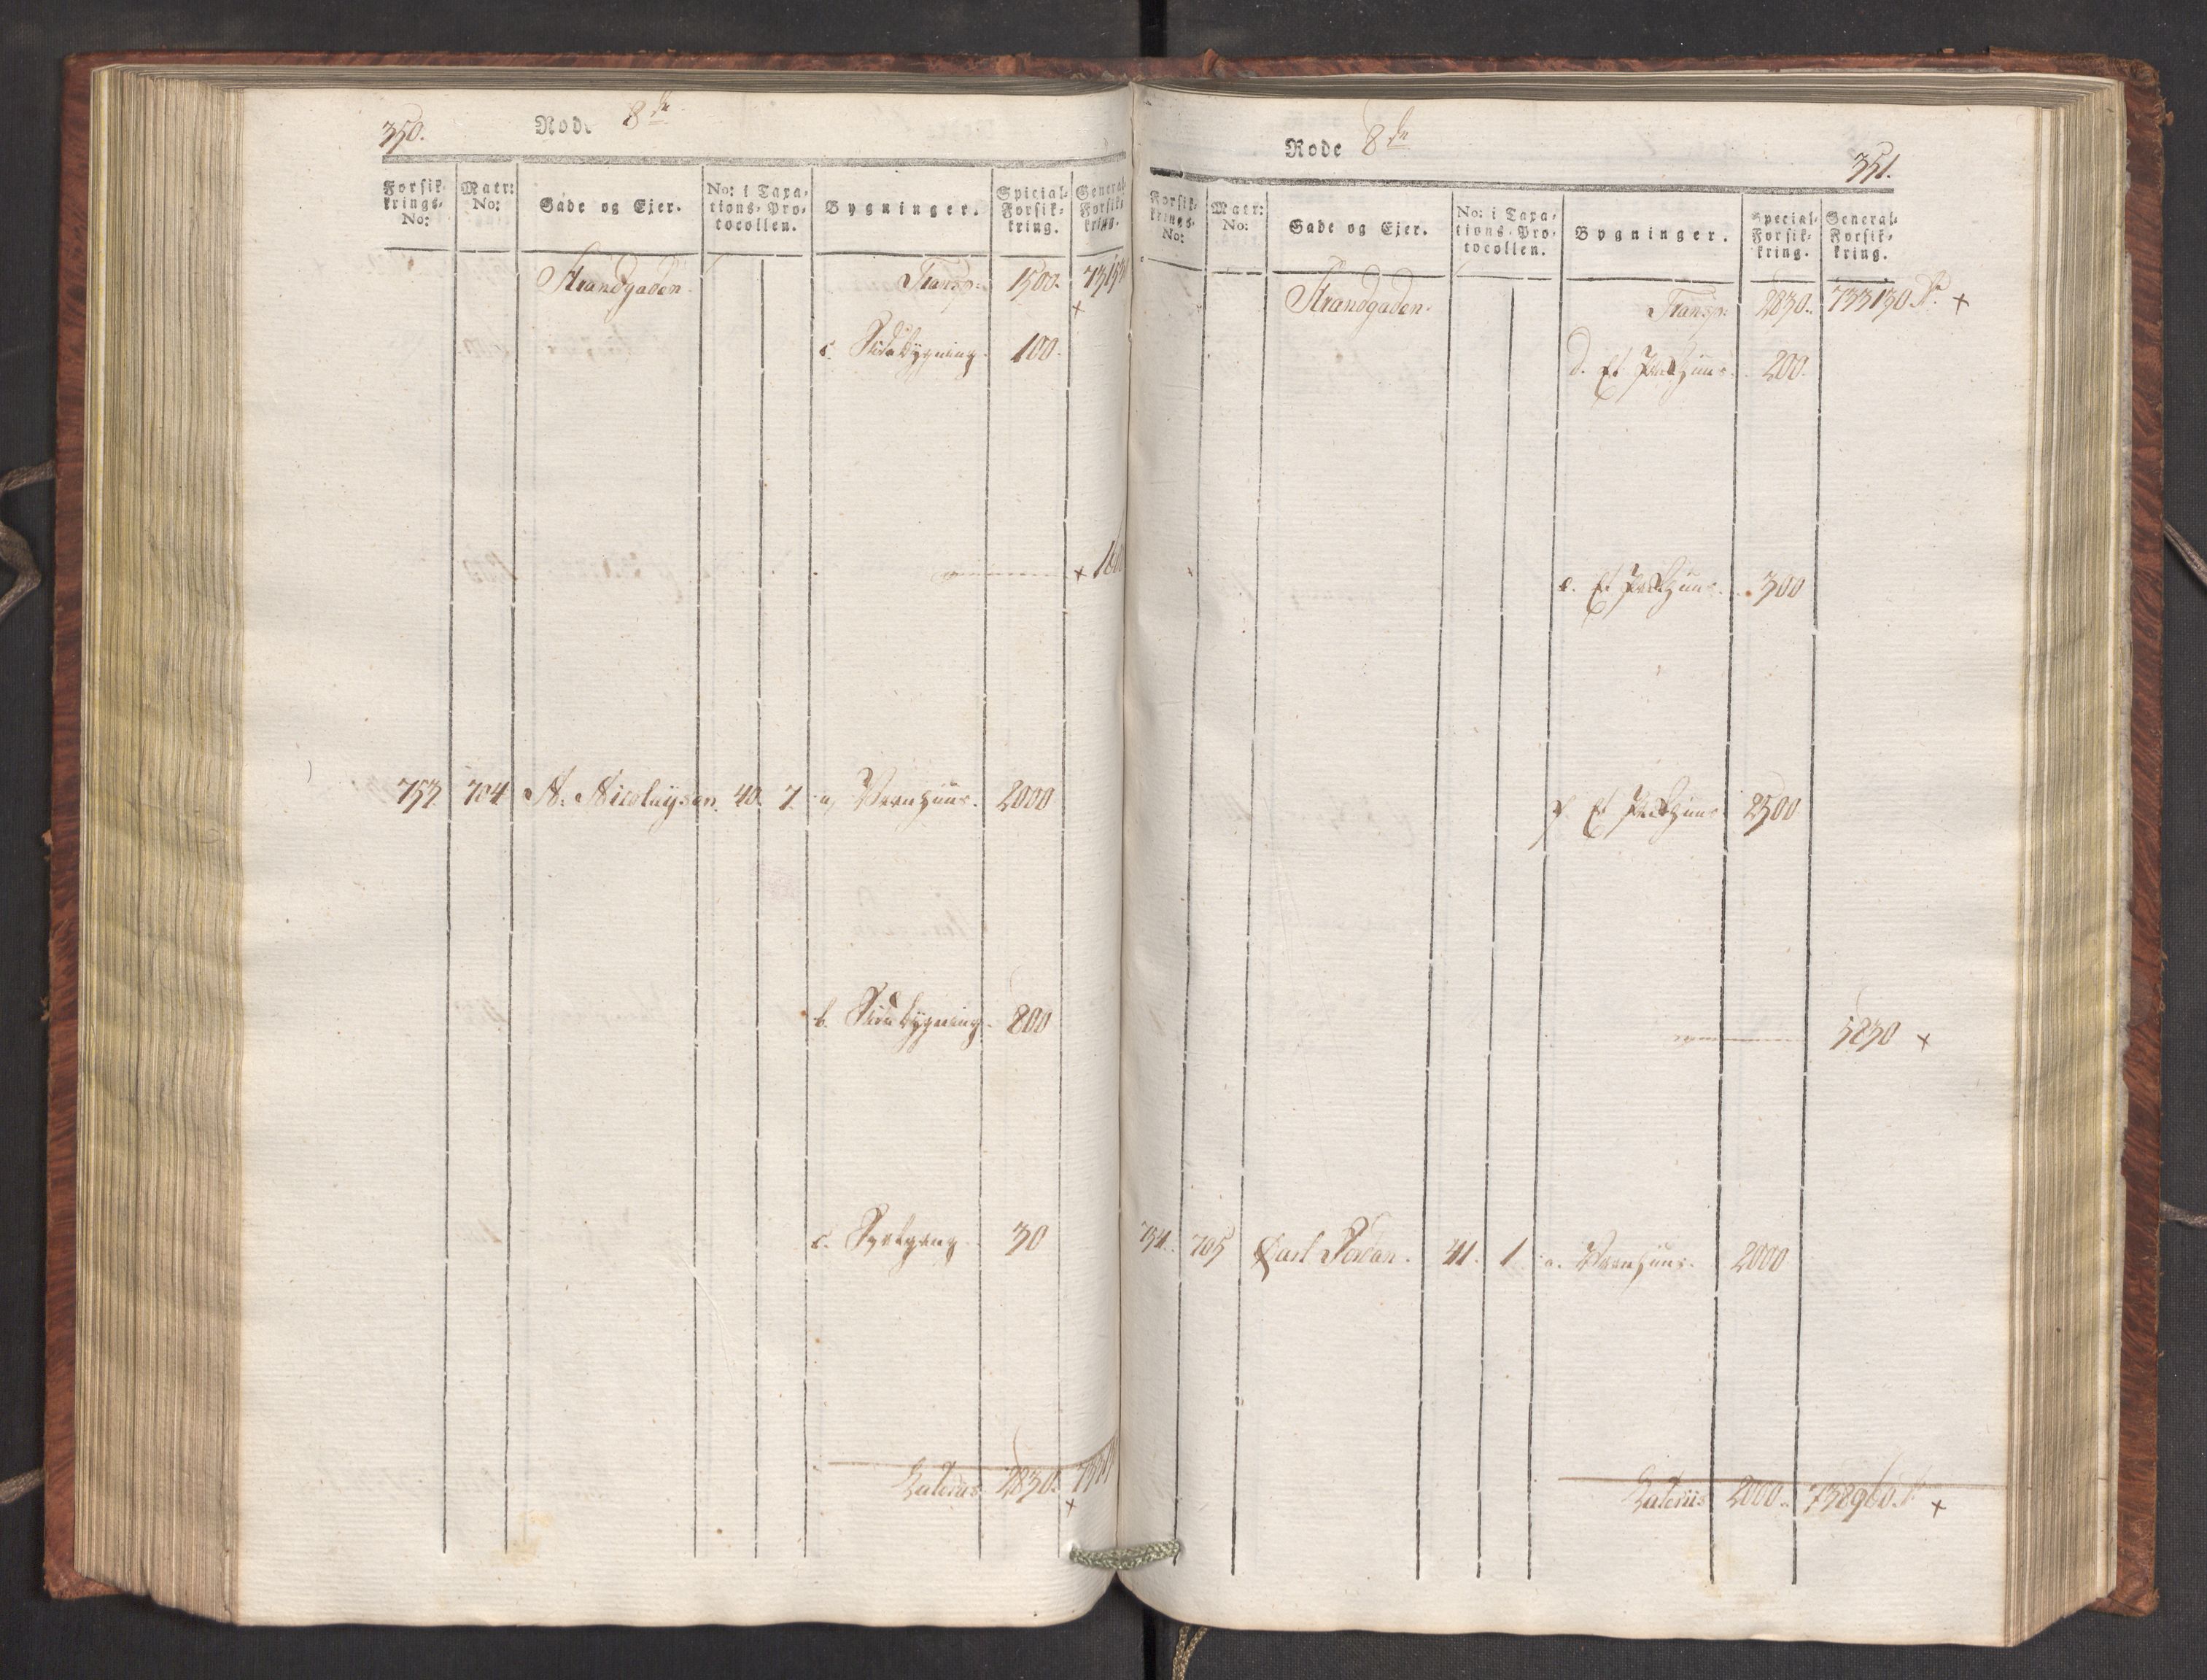 350. Rode 8de
Forsik-
krings-
No:
Matr:
No:
Gade og Ejer.
No: i Taxa-
tions-Pro-
tocollen.
Bygninger.
Spicial-
Forsik-
kring.
General-
Forsik-
kring.
Strandgaden. Transp: 1500.
c. Sidebygning. 100.
753. 704 N. Nicolaysen. 40. 7. a, Vaanhuus. 2000
b. Sidebygning. 800
c. 30
Lateris 2830.
Rode 8de 351.
Forsik-
krings-
No:
Matr:
No:
Gade og Ejer.
No: i Taxa-
tions-Pro-
tocollen.
Bygninger.
Special-
Forsik-
kring.
General-
Forsik-
kring.
Strandgaden. Transp: 2830. 733130 +
d. Et Pakhuus. 200.
e. Et Pakhuus. 300
f. Et Pakhuus 2500
5830 +
754. 705 Carl 41. 1. a. Vaanhuus. 2000
Lateris 2000. 738960 +